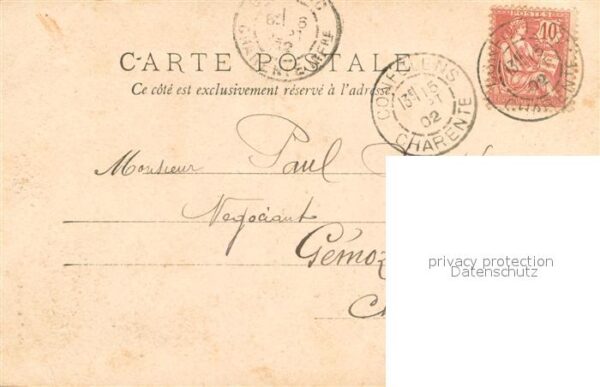 CARTE POSTALE
Ce côté est exclusivement réservé à l'adresse
POSTES 10
CONFOLENS
15
02
CHARENTE
02
CHARENTE
6
02
Monsieur Paul
Négociant
Gémoz
C
privacy protection
Datenschutz